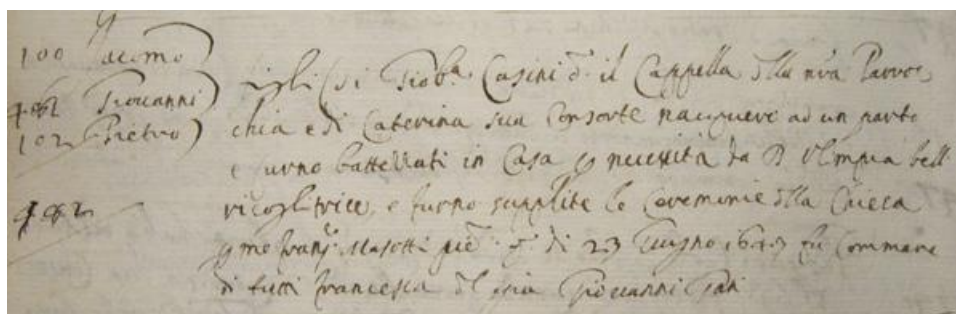 100 Jacomo
Giovanni
102 Pietro
figli di Giob.a Casini d. il Cappella dlla n'ra Parroc
chia e di Caterina sua Consorte nacquere ad un parto
e furno battezzati in Casa p necessità da D Olimpia bell
ricoglitrice, e furno supplite le Ceremonie dlla Chiesa
p me Fran.o Masotti di 23 Giugno fu Commare
di tutti Francesca Giovanni